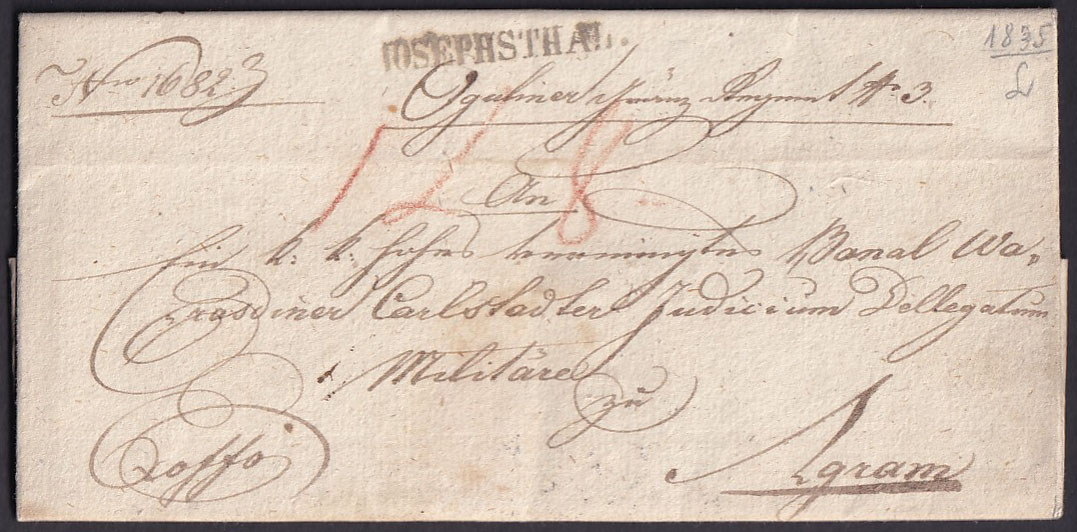 JOSEPHSTHAL.
1835
Nro 1682
Oguliner Gränz Regiment No 3.
12 8
An
Ein k: k: hohes vereinigtes Banal Wa-
rasdiner Carlstadter Judicium Dellegatum
Militäre
zu
Agram